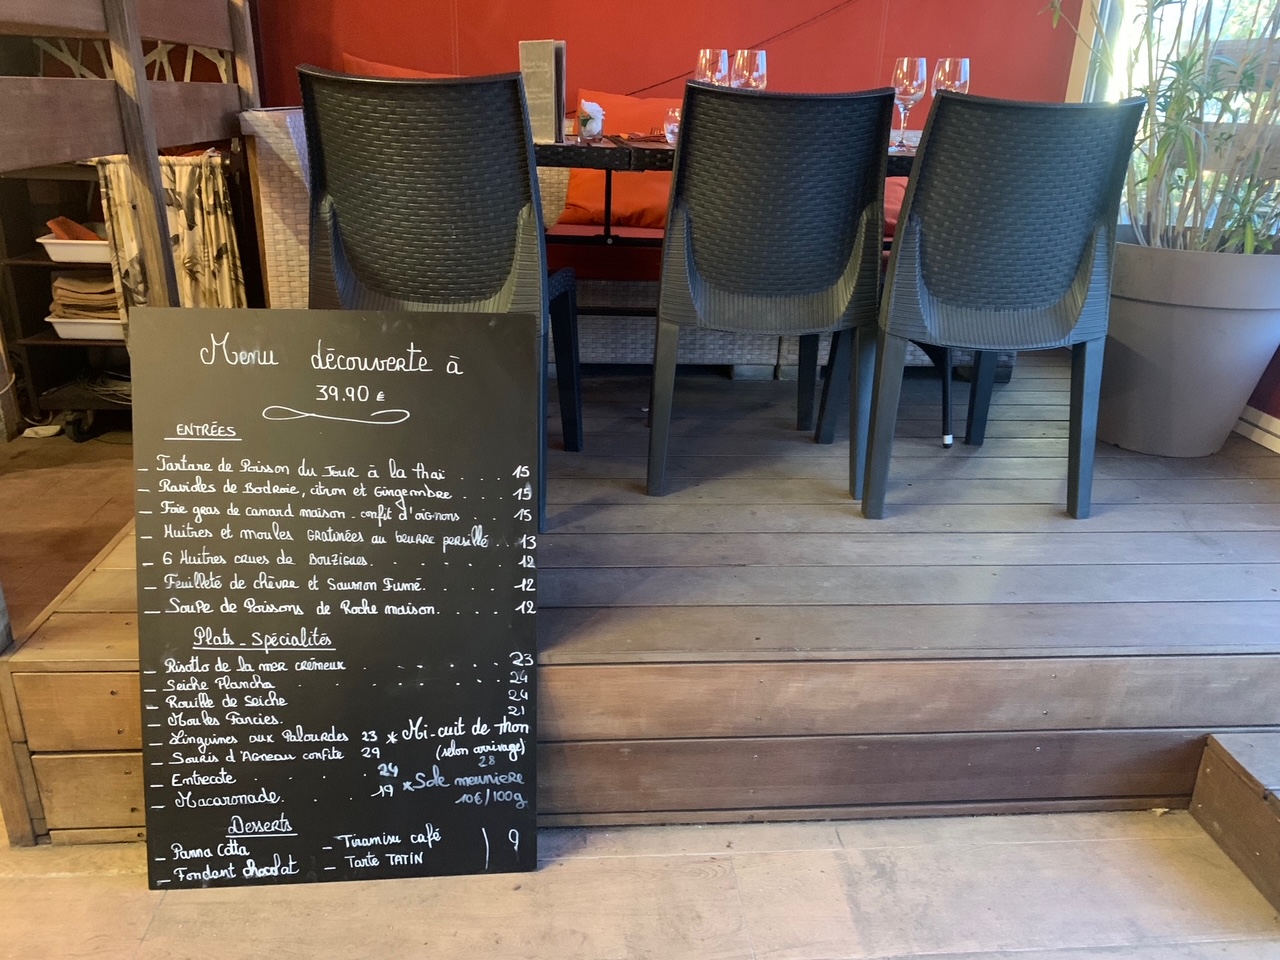 Menu découverte à
39.90 €
ENTRÉES
_ Tartare de Poisson du Jour à la thaï . . . 15
_ Ravioles de Bodroie, citron et Gingembre . . . 15
_ Foie gras de canard maison - confit d'oignons . . 15
_ Huitres et moules GRATINÉES au beurre persillé . . 13
_ 6 Huitres crues de Bouzigues. . . . . . 12
_ Feuilleté de chèvre et Saumon Fumé. . . . . 12
_ Soupe de Poissons de Roche maison. . . . 12
Plats - Spécialités
_ Risotto de la mer crémeux . . . . . . 23
_ Seiche Plancha . . . . . . . . 24
_ Rouille de Seiche 24
_ Moules Farcies. 21
_ Linguines aux Palourdes 23 * Mi-cuit de thon
_ Souris d'Agneau confite 29 (selon arrivage)
28
_ Entrecote . . . . . 24 * Sole meuniere
_ Macaronade. . . . 19 10€/100g
Desserts
_ Panna Cotta _ Tiramisu café | 9
_ Fondant chocolat _ Tarte TATIN